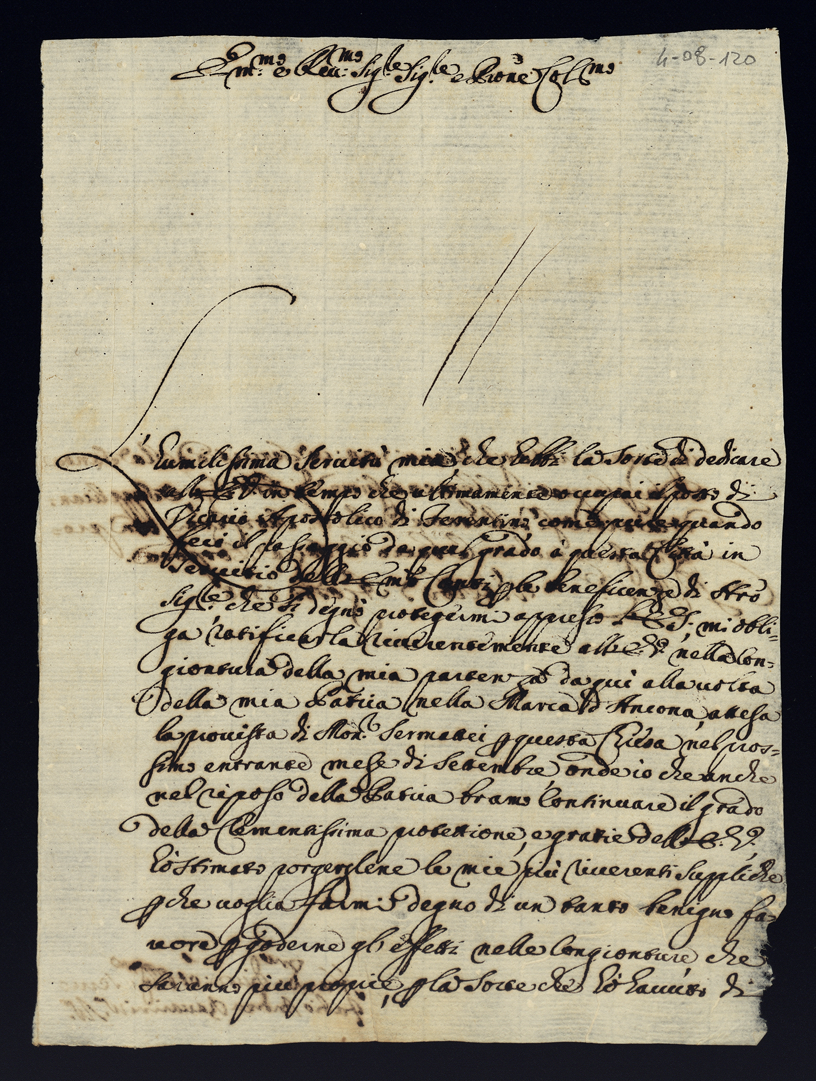 4-08-120
Em.mo e Reu.mo Sig.re Sig.re e Prone Col.mo
L'humilissima seruitù mia che hebbi la sorte di dedicare
all' E.V. in tempo che ultimamente occupai il posto di
Vicario Apostolico di Ferentino come pure quando
feci il passaggio da quel grado à questa Città in
seruitio dell' Em.mo
Sig.re che si degnò proteggermi appresso mi obli=
ga ratificarla riuerentemente all' E.V. nella con=
giontura della mia partenza da qui alla uolta
della mia Patria nella Marca d'Ancona, attesa
la prouista di Mon.r Sermattei p questa Chiesa nel pros=
simo entrante mese di Settembre, onde io che anche
nel riposo della Patria bramo continuare il grado
della clementissima protettione, e gratie dell' E.V.
hò stimato porgerglene le mie più riuerenti suppliche
pche uoglia farmi degno di un tanto benigno fa=
uore p goderne gl'effetti nelle congionture che
saranno più proprie, p la sorte che hò hauuto di